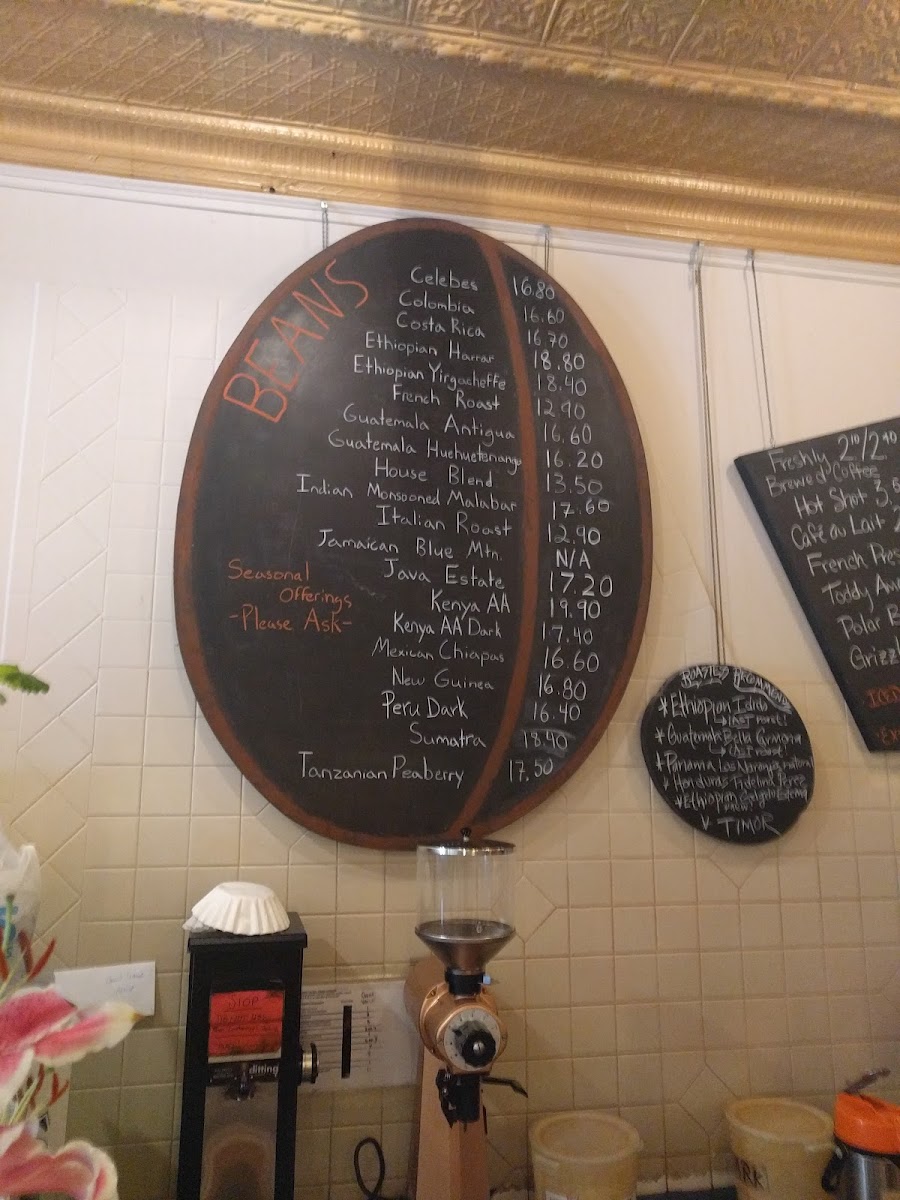 BEANS
Celebes 16.80
Colombia 16.60
Costa Rica 16.70
Ethiopian Harrar 18.80
Ethiopian Yirgacheffe 18.40
French Roast 12.90
Guatemala Antigua 16.60
Guatemala Huehuetenango 16.20
House Blend 13.50
Indian Monsooned Malabar 17.60
Italian Roast 12.90
Jamaican Blue Mtn. N/A
Java Estate 17.20
Kenya AA 19.90
Kenya AA Dark 17.40
Mexican Chiapas 16.60
New Guinea 16.80
Peru Dark 16.40
Sumatra 18.40
Tanzanian Peaberry 17.50
Seasonal
Offerings
-Please Ask-
Freshly 2.10/2.40
Brewed Coffee
Hot Shot 3.
Café au Lait
French Pres
Toddy
Polar B
Grizzl
ROASTER RECOMMENDS
*Ethiopian Idido
last roast!
*Guatemala Bella
last roast!
*Panama Las natural
Honduras Perez
*Ethiopian
TIMOR
STOP
ditting